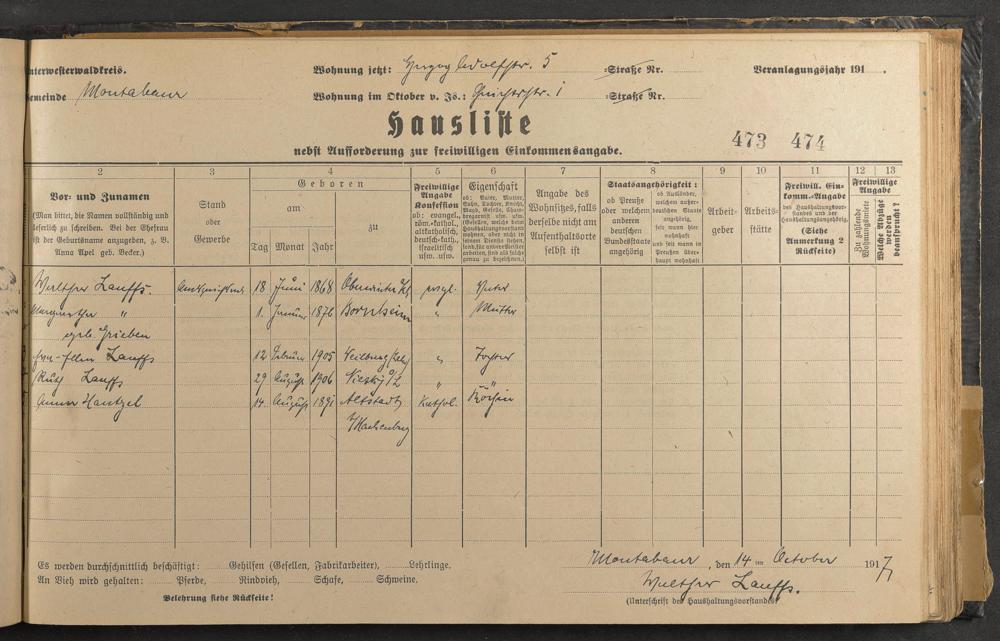 nterwesterwaldkreis.
Wohnung jetzt: Herzog Adolfstr. 5 =Straße Nr.
Veranlagungsjahr 191 .
emeinde Montabaur
Wohnung im Oktober v. Js.: 1 =Straße Nr.
Hausliste
473 474
nebst Aufforderung zur freiwilligen Einkommensangabe.
2 3 4 5 6 7 8 9 10 11 12 13
Vor- und Zunamen
(Man bittet, die Namen vollständig und
leserlich zu schreiben. Bei der Ehefrau
ist der Geburtsname anzugeben, z. B.
Anna Apel geb. Becker.)
Stand
oder
Gewerbe
Geboren
am
zu
Tag Monat Jahr
Freiwillige
Angabe
Konfession
ob: evangel.,
röm.-kathol.
altkatholisch,
deutsch-kath.,
israelitisch
usw. usw.
Eigenschaft
ob: Vater, Mutter,
Sohn, Tochter, Knecht,
Magd, Geselle, Cham-
bregarnist usw. usw.
(Gesellen, welche beim
Haushaltungsvorstand
wohnen, aber nicht in
seinem Dienste stehen,
sond. für andere Meister
arbeiten, sind als solche
genau zu bezeichnen.)
Angabe des
Wohnsitzes, falls
derselbe nicht am
Aufenthaltsorte
selbst ist
Staatsangehörigkeit:
ob Preuße
oder welchem
anderen
deutschen
Bundesstaate
angehörig
ob Ausländer,
welchem außer-
deutschen Staate
angehörig,
seit wann hier
wohnhaft
und seit wann in
Preußen über-
haupt wohnhaft
Arbeit-
geber
Arbeits-
stätte
Freiwill. Ein-
komm.-Angabe
des Haushaltungsvor-
standes und der
Haushaltungsangehörig.
(Siehe
Anmerkung 2
Rückseite)
Freiwillige
Angabe
Zu zahlende
Wohnungsmiete
Welche Abzüge
werden
beansprucht?
Walther Lauffs. 18 Juni 1868 evgl. Vater
Margarethe " 1. Januar 1876 Bornheim " Mutter
geb. Grieben
Lauffs 12 Februar 1905 Weilburg " Tochter
Ruth Lauffs 29 August 1906 Niesky O/L " "
Anna Hantzel 14. August 1891 Altstadt Kathol. Köchin
b/Hachenburg
Es werden durchschnittlich beschäftigt: Gehilfen (Gesellen, Fabrikarbeiter), Lehrlinge.
An Vieh wird gehalten: Pferde, Rindvieh, Schafe, Schweine.
Belehrung siehe Rückseite!
Montabaur, den 14 ten October 1917
Walther Lauffs.
(Unterschrift des Haushaltungsvorstandes)